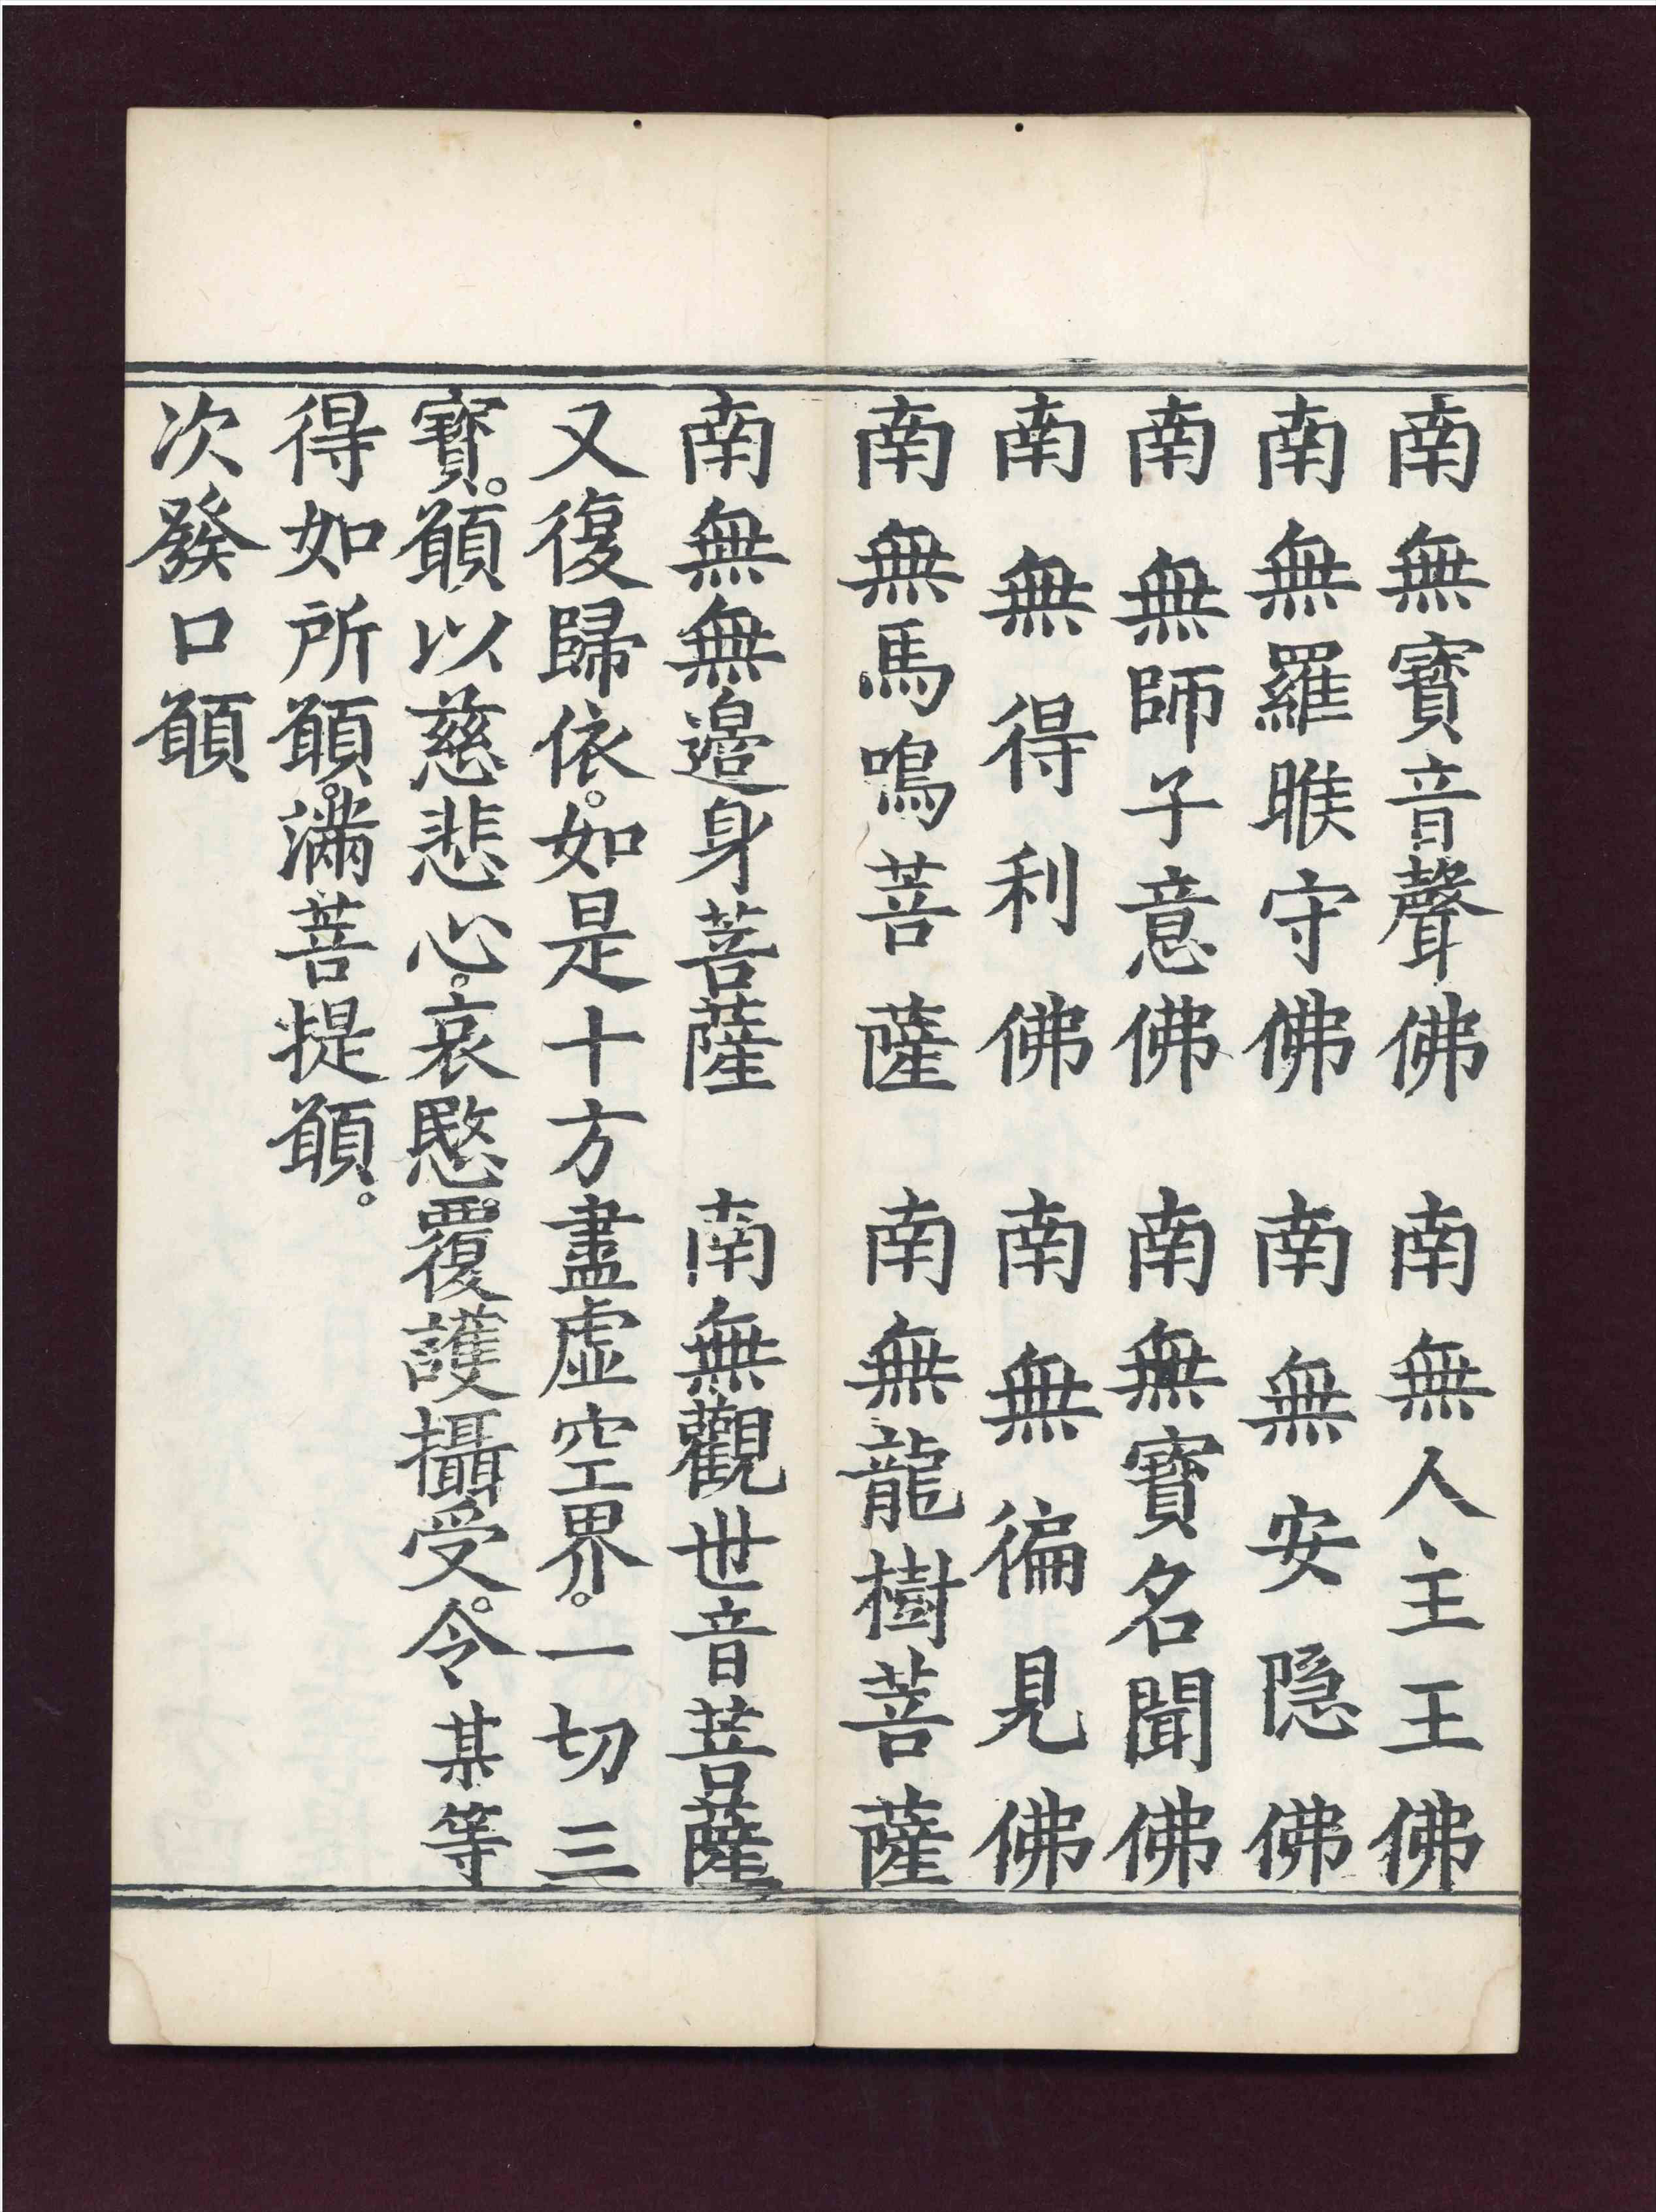 南無寶音聲佛　南無人主王佛
南無羅睺守佛　南無安隱佛
南無師子意佛　南無寶名聞佛
南無得利佛　南無徧見佛
南無馬鳴菩薩　南無龍樹菩薩
南無無邊身菩薩　南無觀世音菩薩
又復歸依。如是十方盡虛空界。一切三
寶。願以慈悲心。哀愍。覆護攝受。令某等
得如所願。滿菩提願。
次發口願